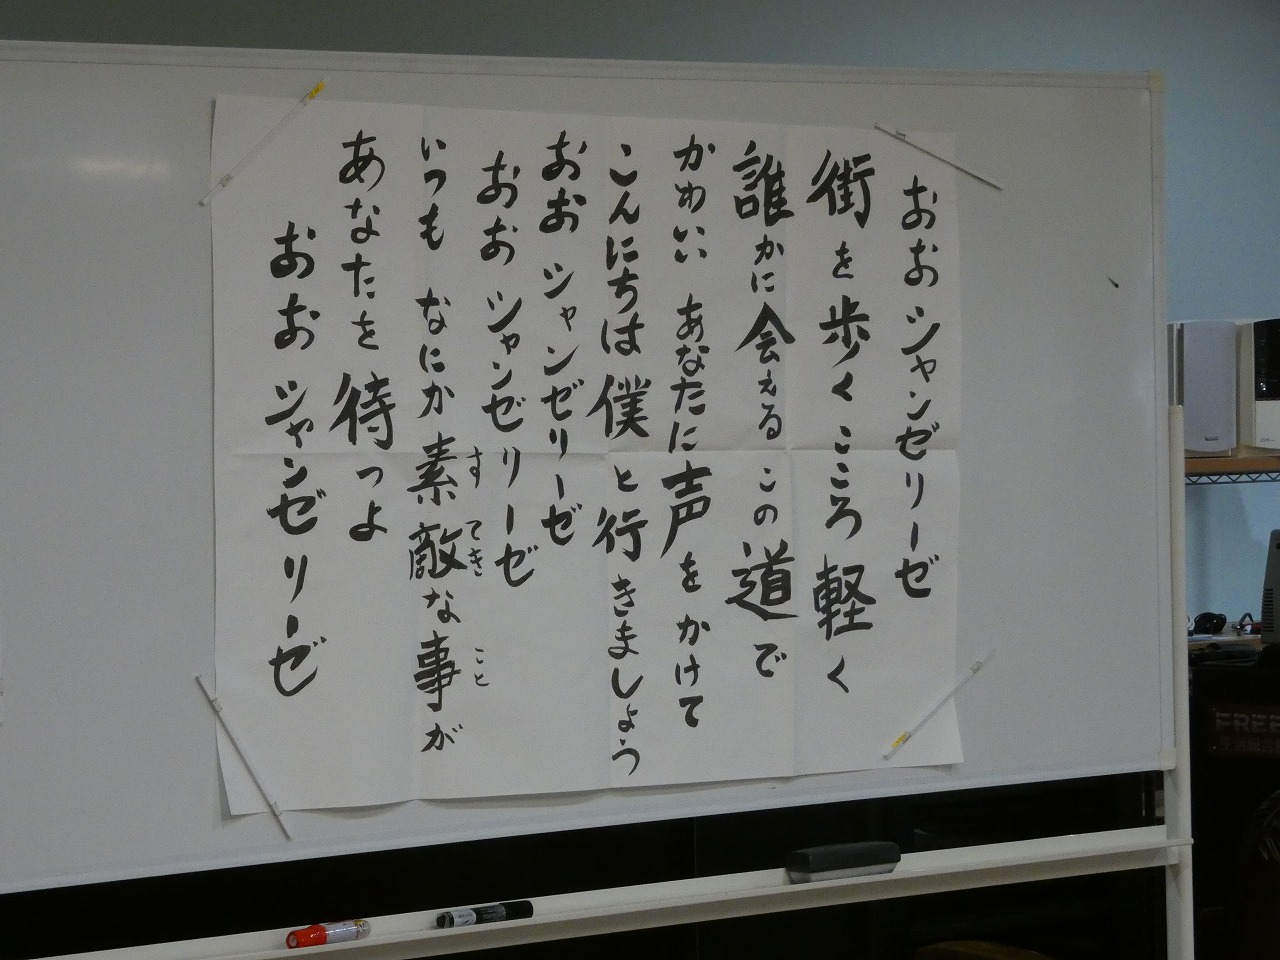 おお シャンゼリーゼ
街を歩く こころ 軽く
誰かに会える この道で
かわいい あなたに声を かけて
こんにちは僕と行きましょう
おお シャンゼリーゼ
おお シャンゼリーゼ
いつも なにか素敵な事が
すてき こと
あなたを待つよ
おお シャンゼリーゼ
FREE